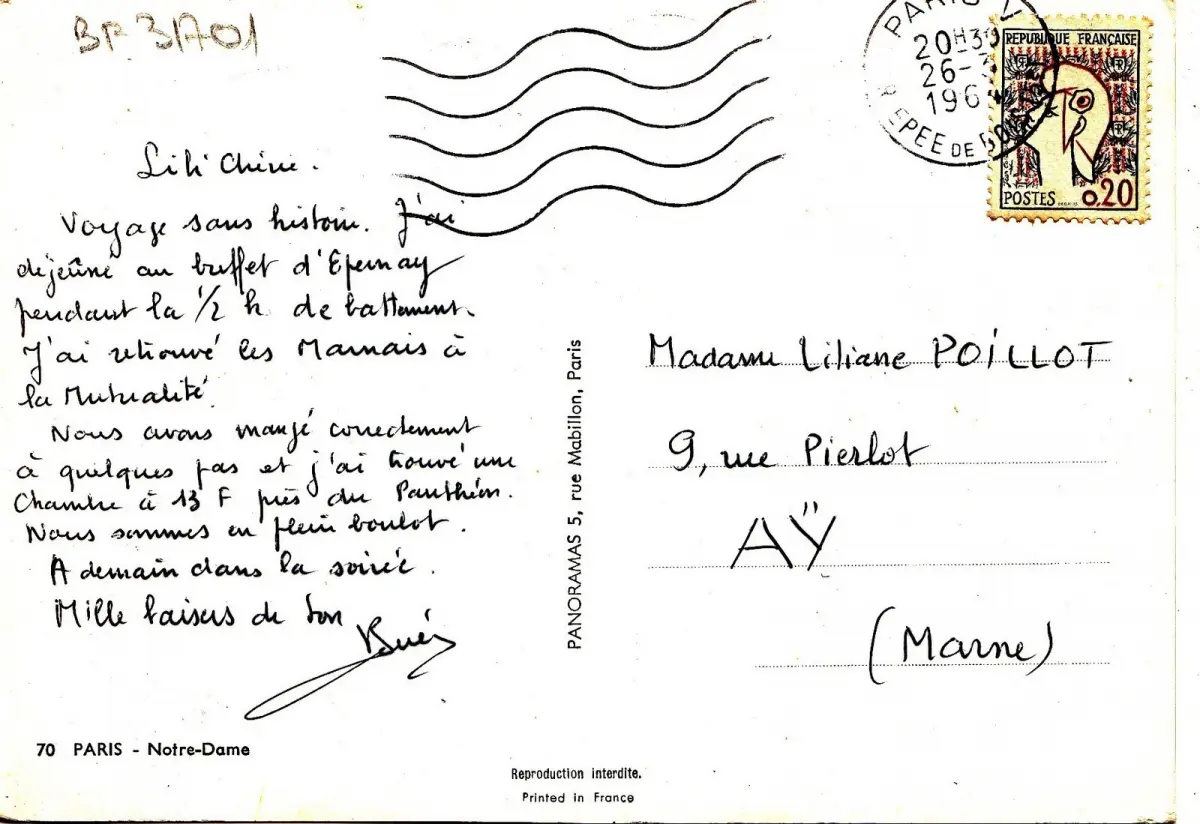 BF 31701
PARIS V
20H30
26-3
196
R. EPEE DE BOIS
REPUBLIQUE FRANÇAISE
POSTES
0,20
Lili Chérie.
Voyage sans histoire. J'ai
déjeûné au buffet d'Epernay
pendant la 1/2 h de battement.
J'ai retrouvé les Marnais à
la Mutualité.
Nous avons mangé correctement
à quelques pas et j'ai trouvé une
Chambre à 13 F près du Panthéon.
Nous sommes en plein boulot.
A demain dans la soirée.
Mille baisers de ton
PANORAMAS 5, rue Mabillon, Paris
Madame Liliane POÍLLOT
9, rue Pierlot
AŸ
(Marne)
70 PARIS - Notre-Dame
Reproduction interdite.
Printed in France